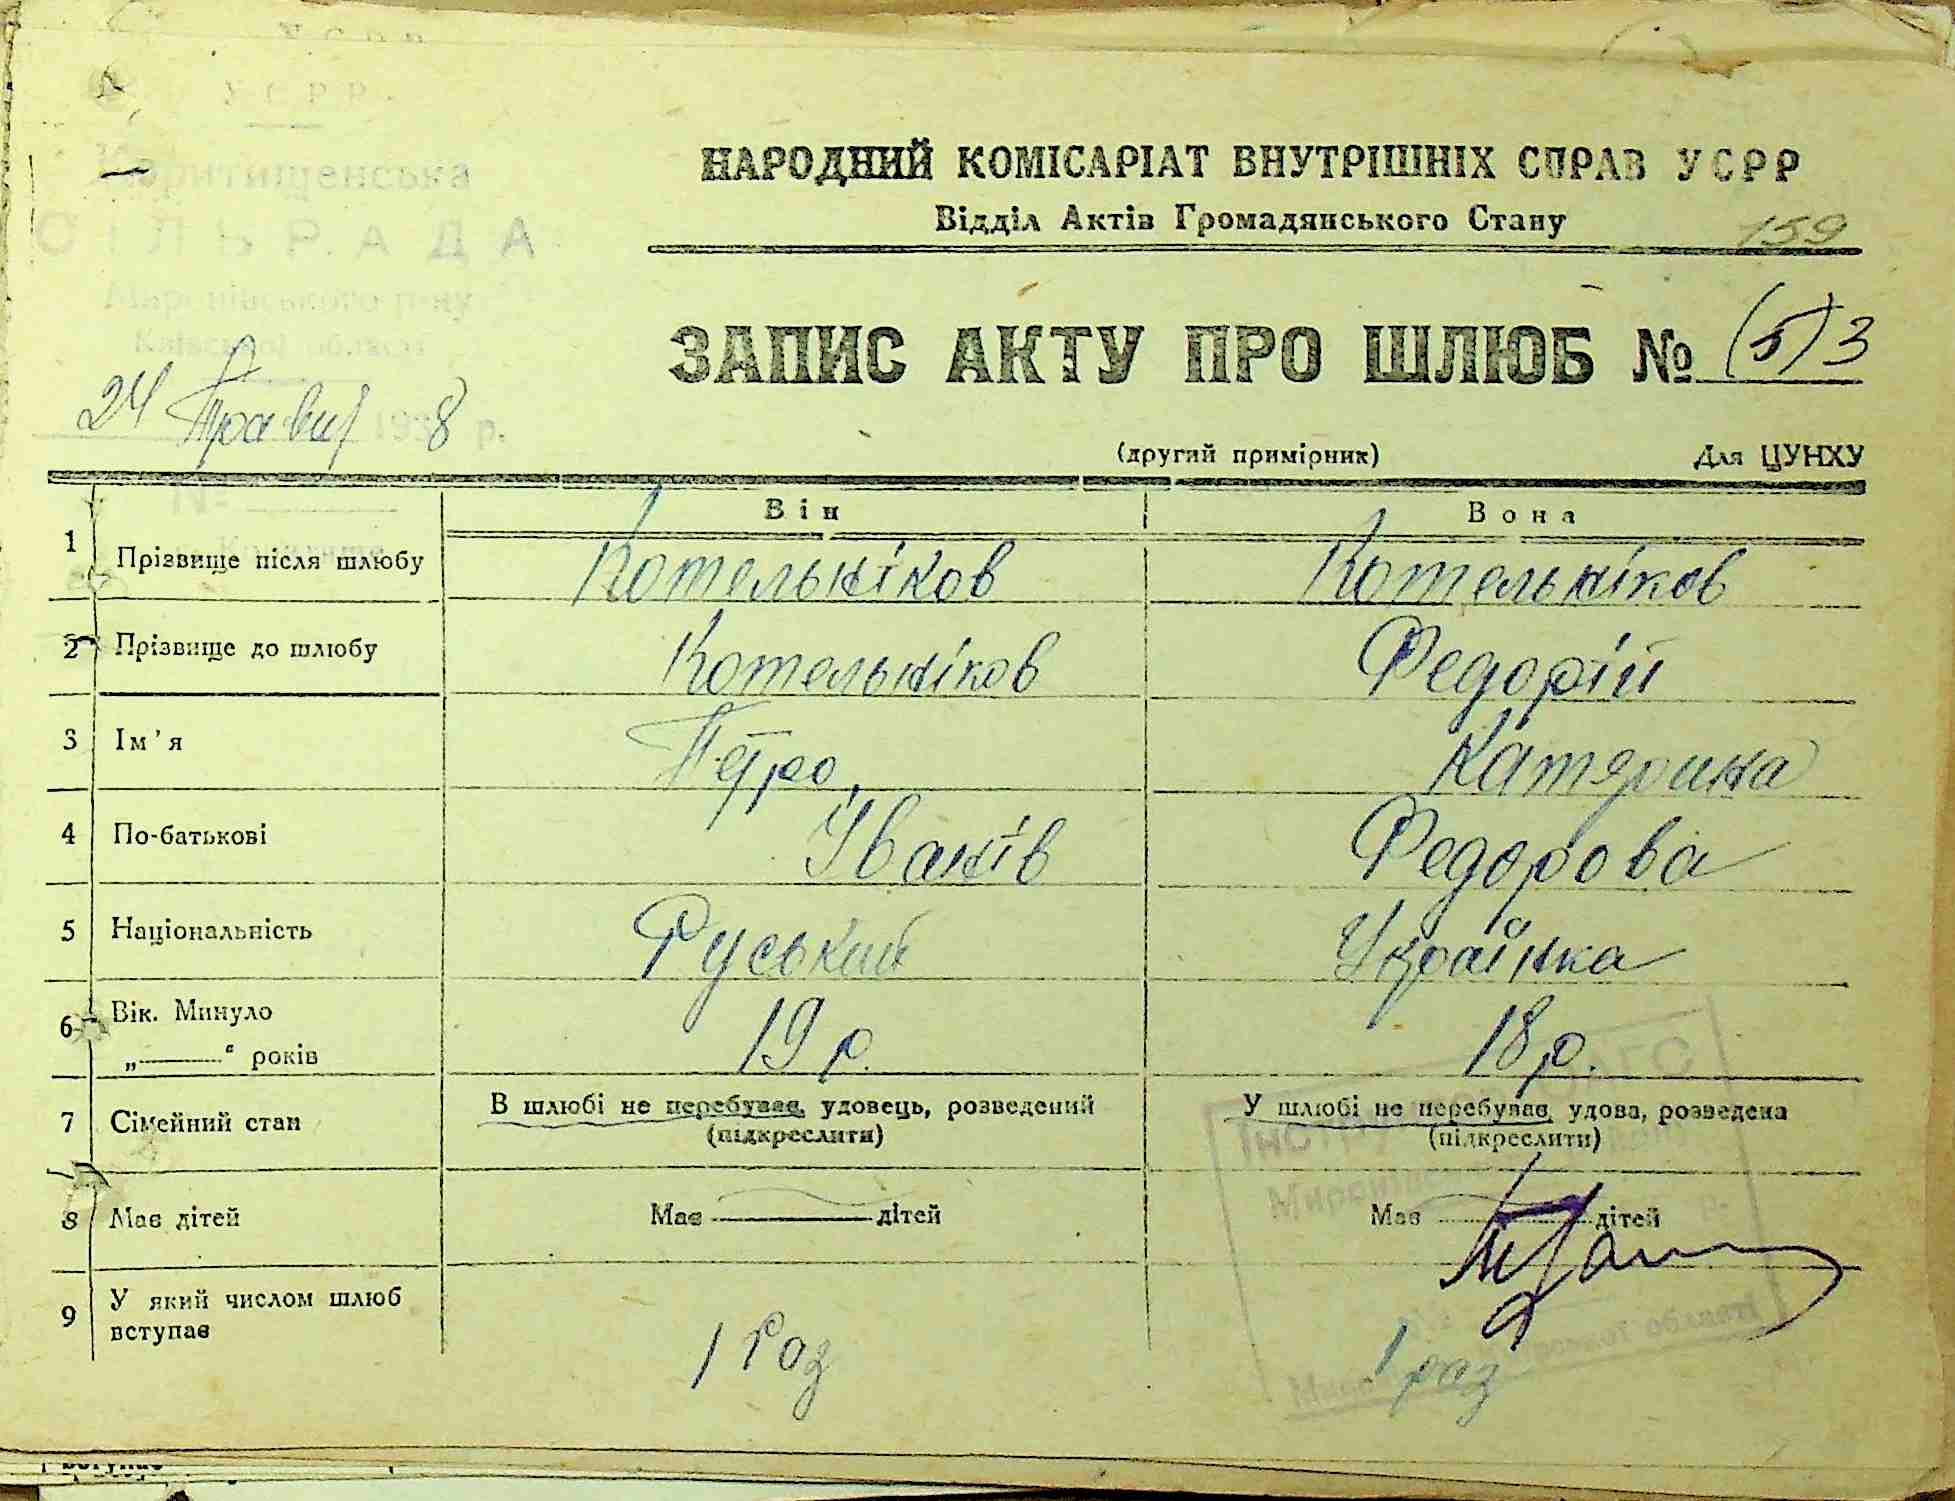 УСРР.
Коритищенська
СІЛЬРАДА
Київської області
24 Травня 1938 р.
№
НАРОДНИЙ КОМІСАРІАТ ВНУТРІШНІХ СПРАВ УСРР
Відділ Актів Громадянського Стану
159
ЗАПИС АКТУ ПРО ШЛЮБ № (5) 3
(другий примірник) Для ЦУНХУ
Він Вона
1 Прізвище після шлюбу Котельніков Котельніков
2 Прізвище до шлюбу Котельніков Федорій
3 Ім'я Петро Катярина
4 По-батькові Іванів Федорова
5 Національність Руський Українка
6 Вік. Минуло
„———“ років 19 р. 18 р.
7 Сімейний стан В шлюбі не перебував, удовець, розведений У шлюбі не перебував, удова, розведена
(підкреслити) (підкреслити)
8 Має дітей Має ——— дітей Має ——— дітей
9 У який числом шлюб
вступає 1 Раз 1 раз
області